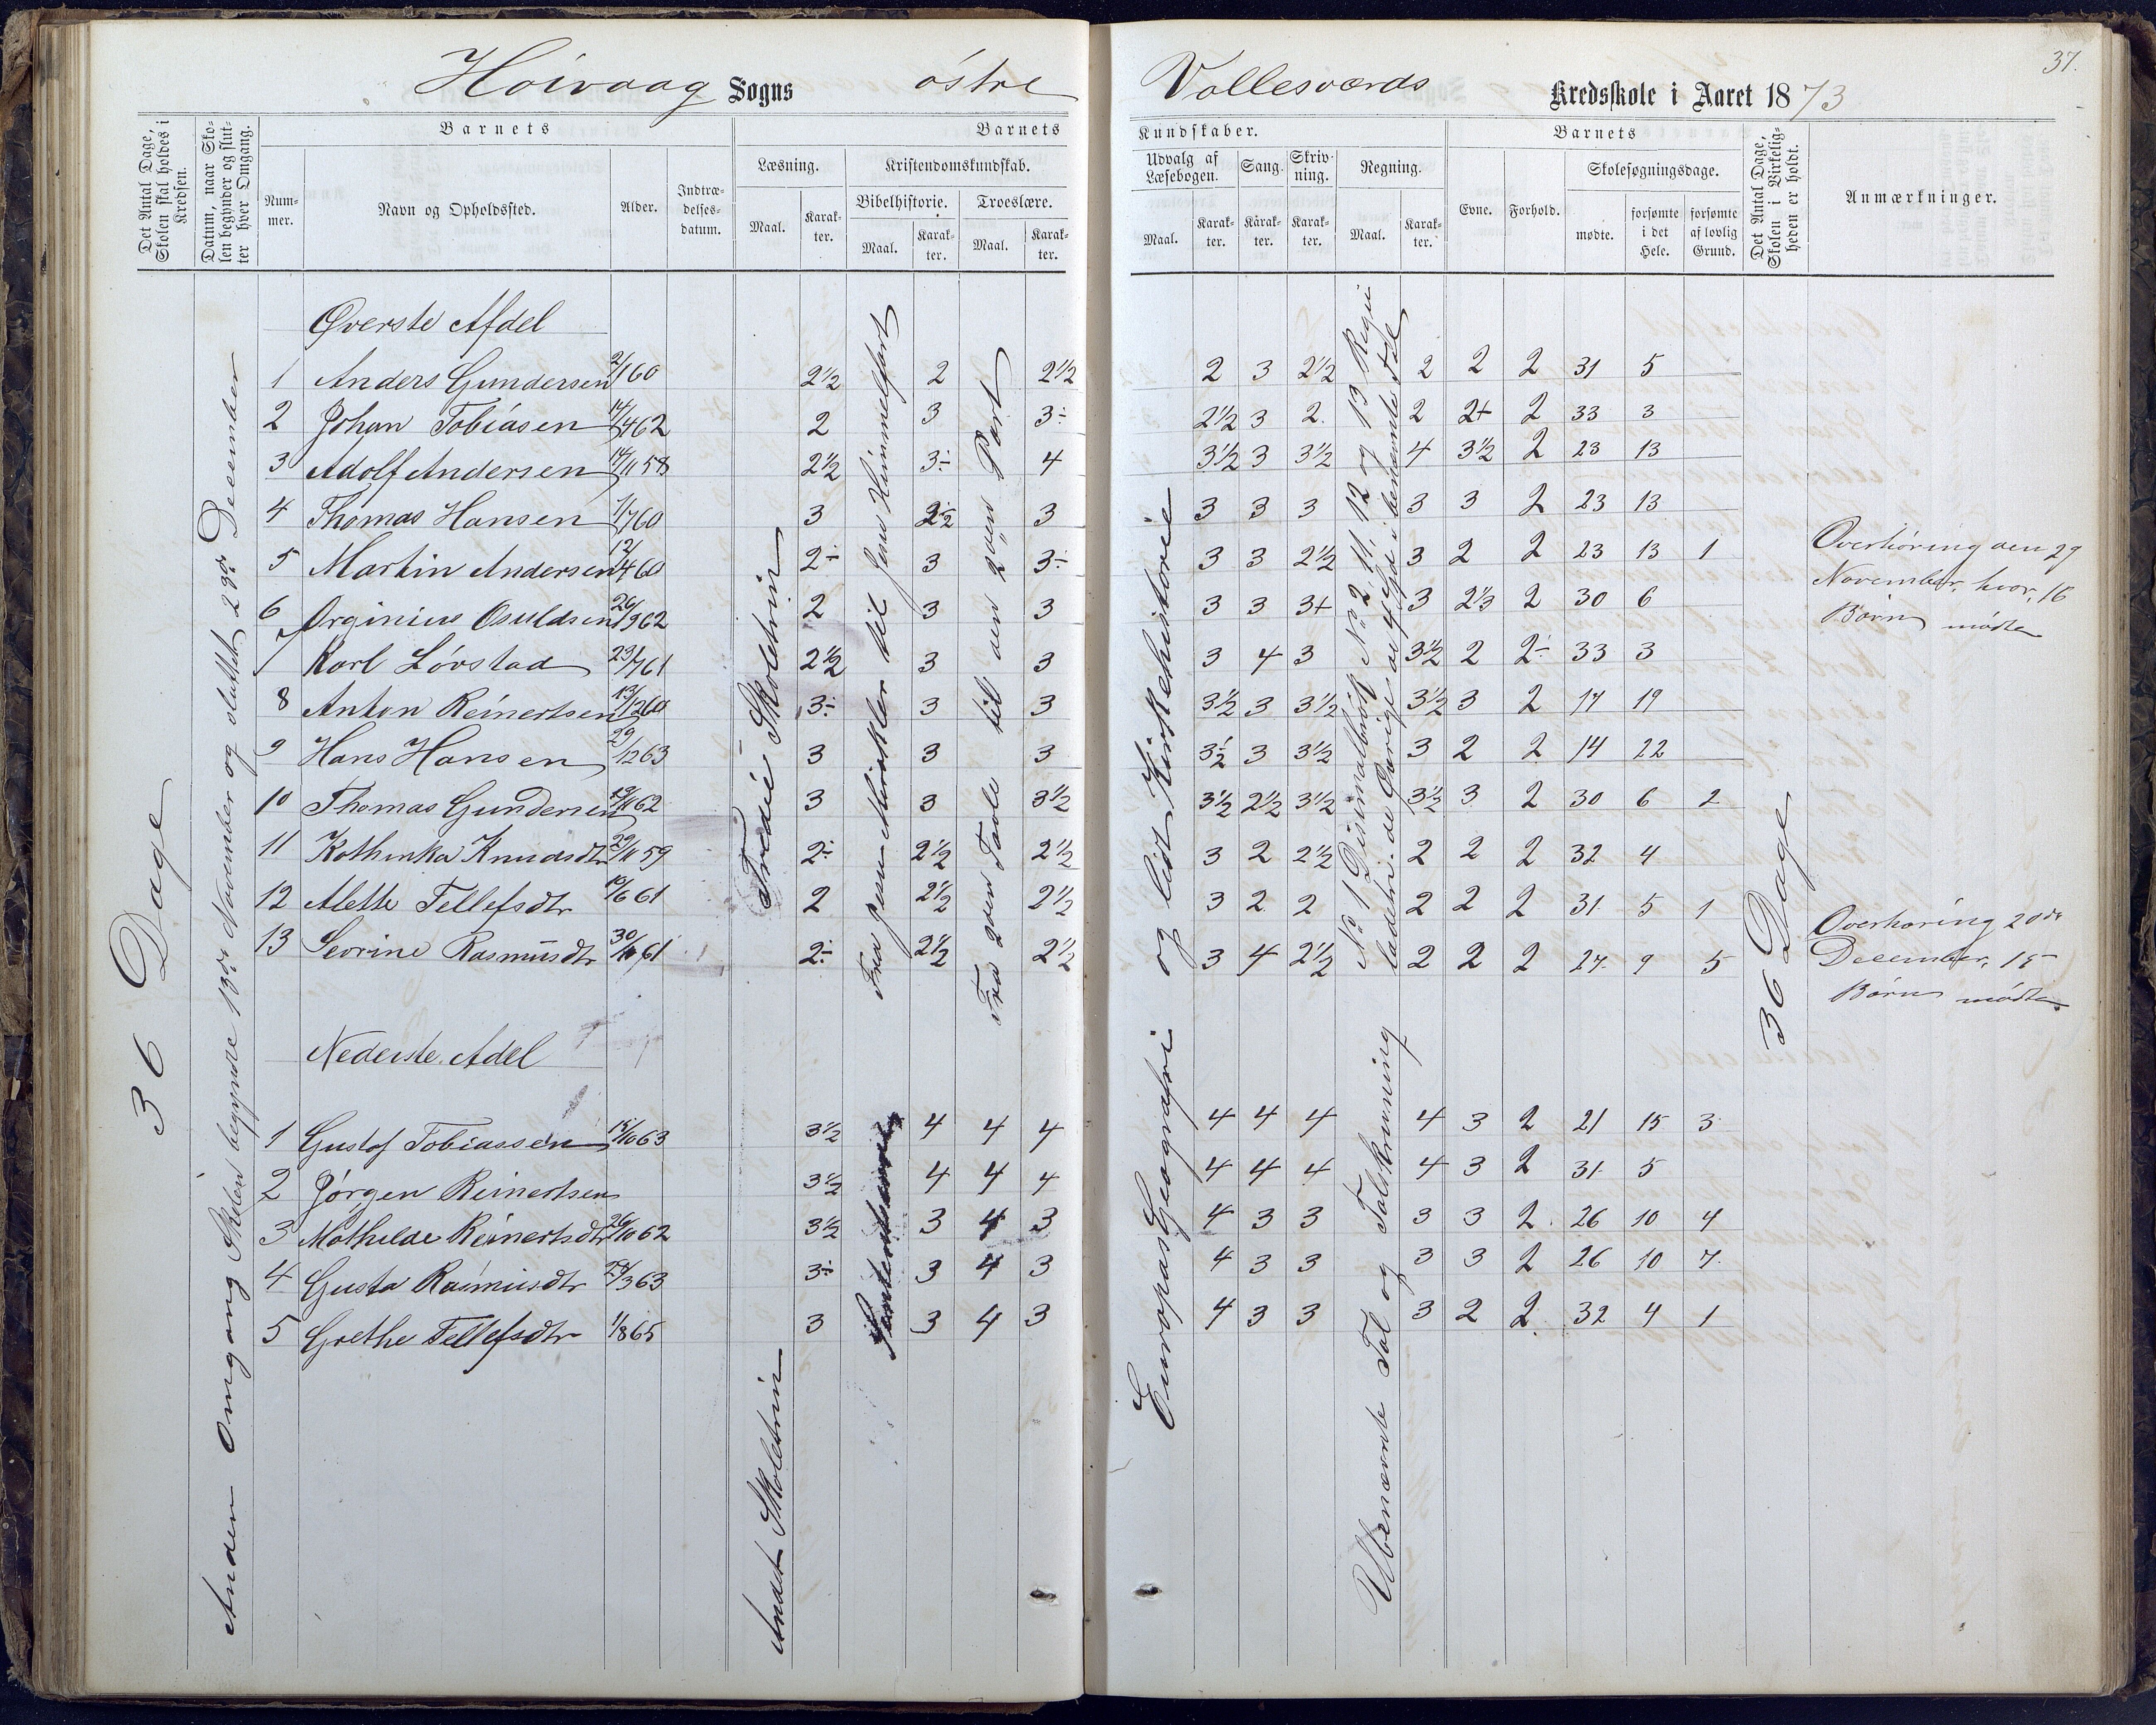 37.
Høivaag Sogns østre Vollesværds Kredsskole i Aaret 1873
Det Antal Dage, Skolen skal holdes i Kredsen.
Datum, naar Skolen begynder og slutter hver Omgang.
Barnets
Nummer.
Navn og Opholdssted.
Alder.
Indtrædelsesdatum.
Barnets Kundskaber.
Læsning.
Maal.
Karakter.
Kristendomskundskab.
Bibelhistorie.
Maal.
Karakter.
Troeslære.
Maal.
Karakter.
Udvalg af Læsebogen.
Maal.
Karakter.
Sang.
Karakter.
Skrivning.
Karakter.
Regning.
Maal.
Karakter.
Barnets
Evne.
Forhold.
Skolesøgningsdage.
mødte.
forsømte i det Hele.
forsømte af lovlig Grund.
Det Antal Dage, Skolen i Virkeligheden er holdt.
Anmærkninger.
36 Dage
Anden Omgang Skolen begyndte 13de November og sluttet 23de December
Tredie Skoletrin
Fra Jesu Mirakler til Jesu Himmelfart
Fra 2den Tavle til den 2den Part
Europas Geografi og lidt Kirkehistorie
36 Dage
Øverste Afdel
1 Anders Gundersen 2/1 60 2½ 2 2½ 2 3 2½ 2 2 2 31 5
2 Johan Tobiasen 14/4 62 2 3 3÷ 2½ 3 2 2 2+ 2 33 3
3 Adolf Andersen 14/11 58 2½ 3÷ 4 3½ 3 3½ 4 3½ 2 23 13
4 Thomas Hansen 1/7 60 3 2½ 3 3 3 3 3 3 2 23 13
5 Martin Andersen 12/4 60 2÷ 3 3÷ 3 3 2½ 3 2 2 23 13 1
6 Orginius Osuldsen 26/9 62 2 3 3 3 3 3+ 3 2⅓ 2 30 6
7 Karl Løvstad 23/7 61 2½ 3 3 3 4 3 3½ 2 2÷ 33 3
8 Anton Reinertsen 13/12 60 3÷ 3 3 3½ 3 3½ 3½ 3 2 17 19
9 Hans Hansen 29/12 63 3 3 3 3½ 3 3½ 3 2 2 14 22
10 Thomas Gundersen 19/11 62 3 3 3½ 3½ 2½ 3½ 3½ 3 2 30 6 2
11 Kathinka Knudsdtr 29/11 59 2÷ 2½ 2½ 3 2 2½ 2 2 2 32 4
12 Alette Tellefsdtr 10/6 61 2 2½ 2½ 3 2 2 2 2 2 31 5 1
13 Sevrine Rasmusdtr 30/10 61 2÷ 2½ 2½ 3 4 2½ 2 2 2 27 9 5
Overhøring den 29
November, hvor 16
Børn mødte
Overhøring 20de
December, 15
Børn mødte
Nederste Adel
Andet Skoletrin
Ubenævnte Tal og Talskrivning
1 Gustaf Tobiassen 15/10 63 3½ 4 4 4 4 4 4 4 3 2 21 15 3
2 Jørgen Reinertsen 3½ 4 4 4 4 4 4 4 3 2 31 5
3 Mathilde Reinertsdtr 26/10 62 3½ 3 4 3 4 3 3 3 3 2 26 10 4
4 Gusta Rasmusdtr 24/3 63 3÷ 3 4 3 4 3 3 3 3 2 26 10 7
5 Grethe Tellefsdtr 1/8 65 3 3 4 3 4 3 3 3 2 2 32 4 1